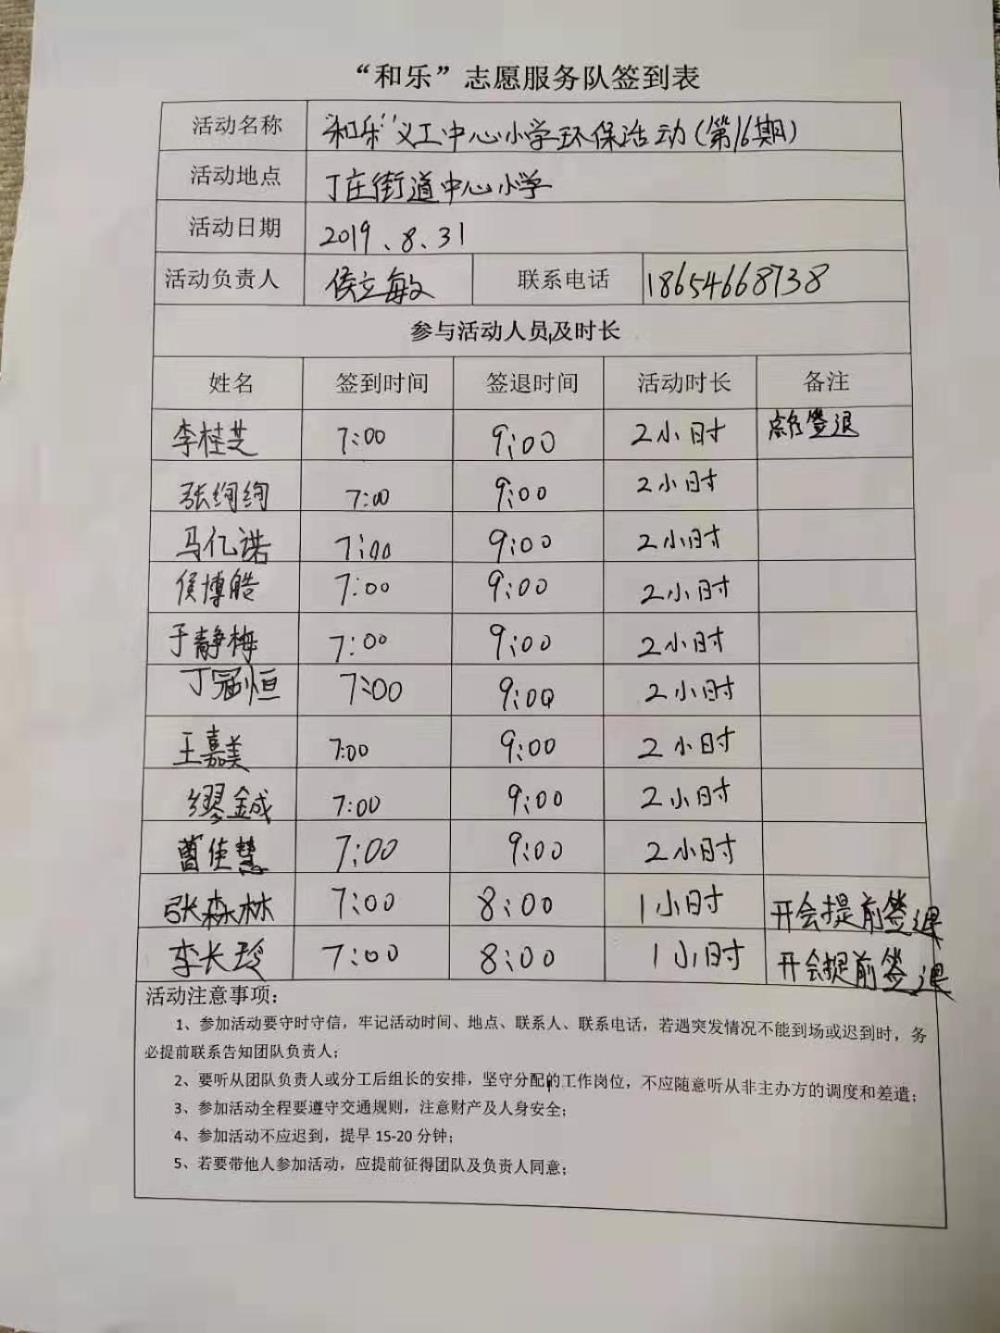 “和乐”志愿服务队签到表
活动名称 “和乐”义工中心小学环保活动(第16期)
活动地点 丁庄街道中心小学
活动日期 2019.8.31
活动负责人 侯立敏 联系电话 18654668738
参与活动人员及时长
姓名 签到时间 签退时间 活动时长 备注
李桂芝 7:00 9:00 2小时 签退
张绚绚 7:00 9:00 2小时
马亿诺 7:00 9:00 2小时
侯博皓 7:00 9:00 2小时
于静梅 7:00 9:00 2小时
丁冠恒 7:00 9:00 2小时
王嘉美 7:00 9:00 2小时
缪鋮 7:00 9:00 2小时
曹佳慧 7:00 9:00 2小时
张森林 7:00 8:00 1小时 开会提前签退
李长玲 7:00 8:00 1小时 开会提前签退
活动注意事项：
1、参加活动要守时守信，牢记活动时间、地点、联系人、联系电话，若遇突发情况不能到场或迟到时，务
必提前联系告知团队负责人；
2、要听从团队负责人或分工后组长的安排，坚守分配的工作岗位，不应随意听从非主办方的调度和差遣；
3、参加活动全程要遵守交通规则，注意财产及人身安全；
4、参加活动不应迟到，提早 15-20 分钟；
5、若要带他人参加活动，应提前征得团队及负责人同意；